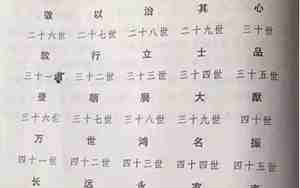 敬 以 治 其 心
二十六世 二十七世 二十八世 二十九世 三十世
敦 行 立 士 品
三十一世 三十二世 三十三世 三十四世 三十五世
登 朝 展 大 猷
三十六世 三十七世 三十八世 三十九世 四十世
万 世 鸿 名 振
四十一世 四十二世 四十三世 四十四世 四十五世
长 远 永